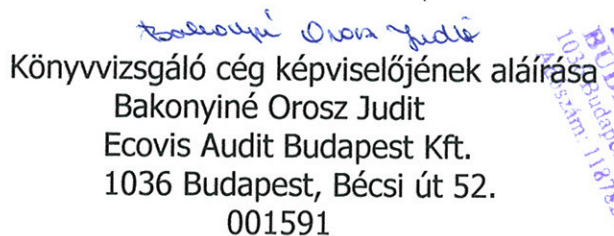 Bakonyiné Orosz Judit
Könyvvizsgáló cég képviselőjének aláírása
Bakonyiné Orosz Judit
Ecovis Audit Budapest Kft.
1036 Budapest, Bécsi út 52.
001591